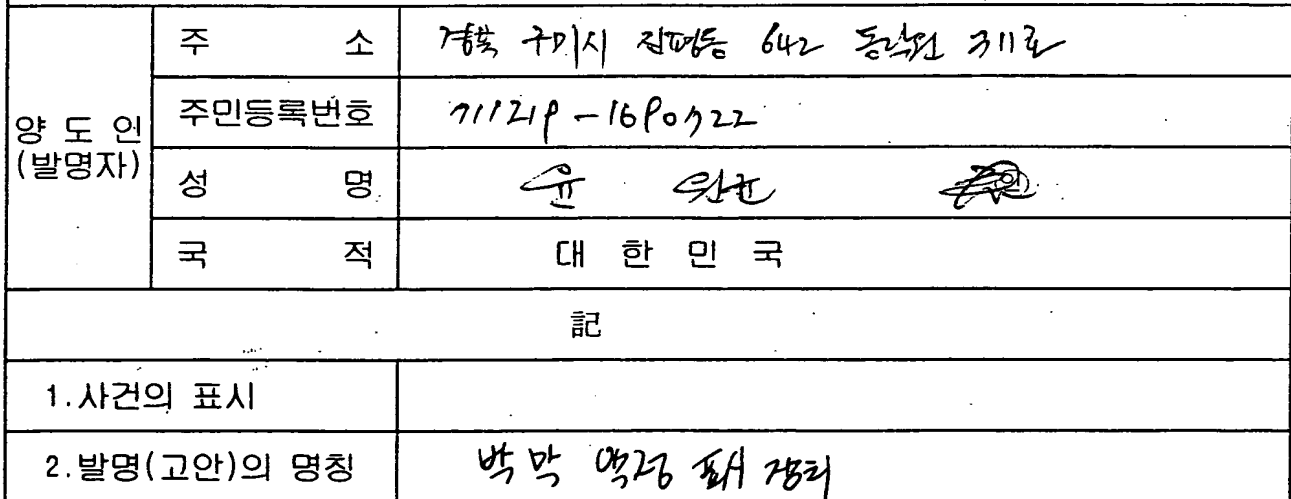 양 도 인
(발명자)
주 소 경북 구미시 진평동 642 동락원 311호
주민등록번호 711219-1690722
성 명 윤
국 적 대 한 민 국
記
1.사건의 표시
2.발명(고안)의 명칭 박막 액정 표시 장치